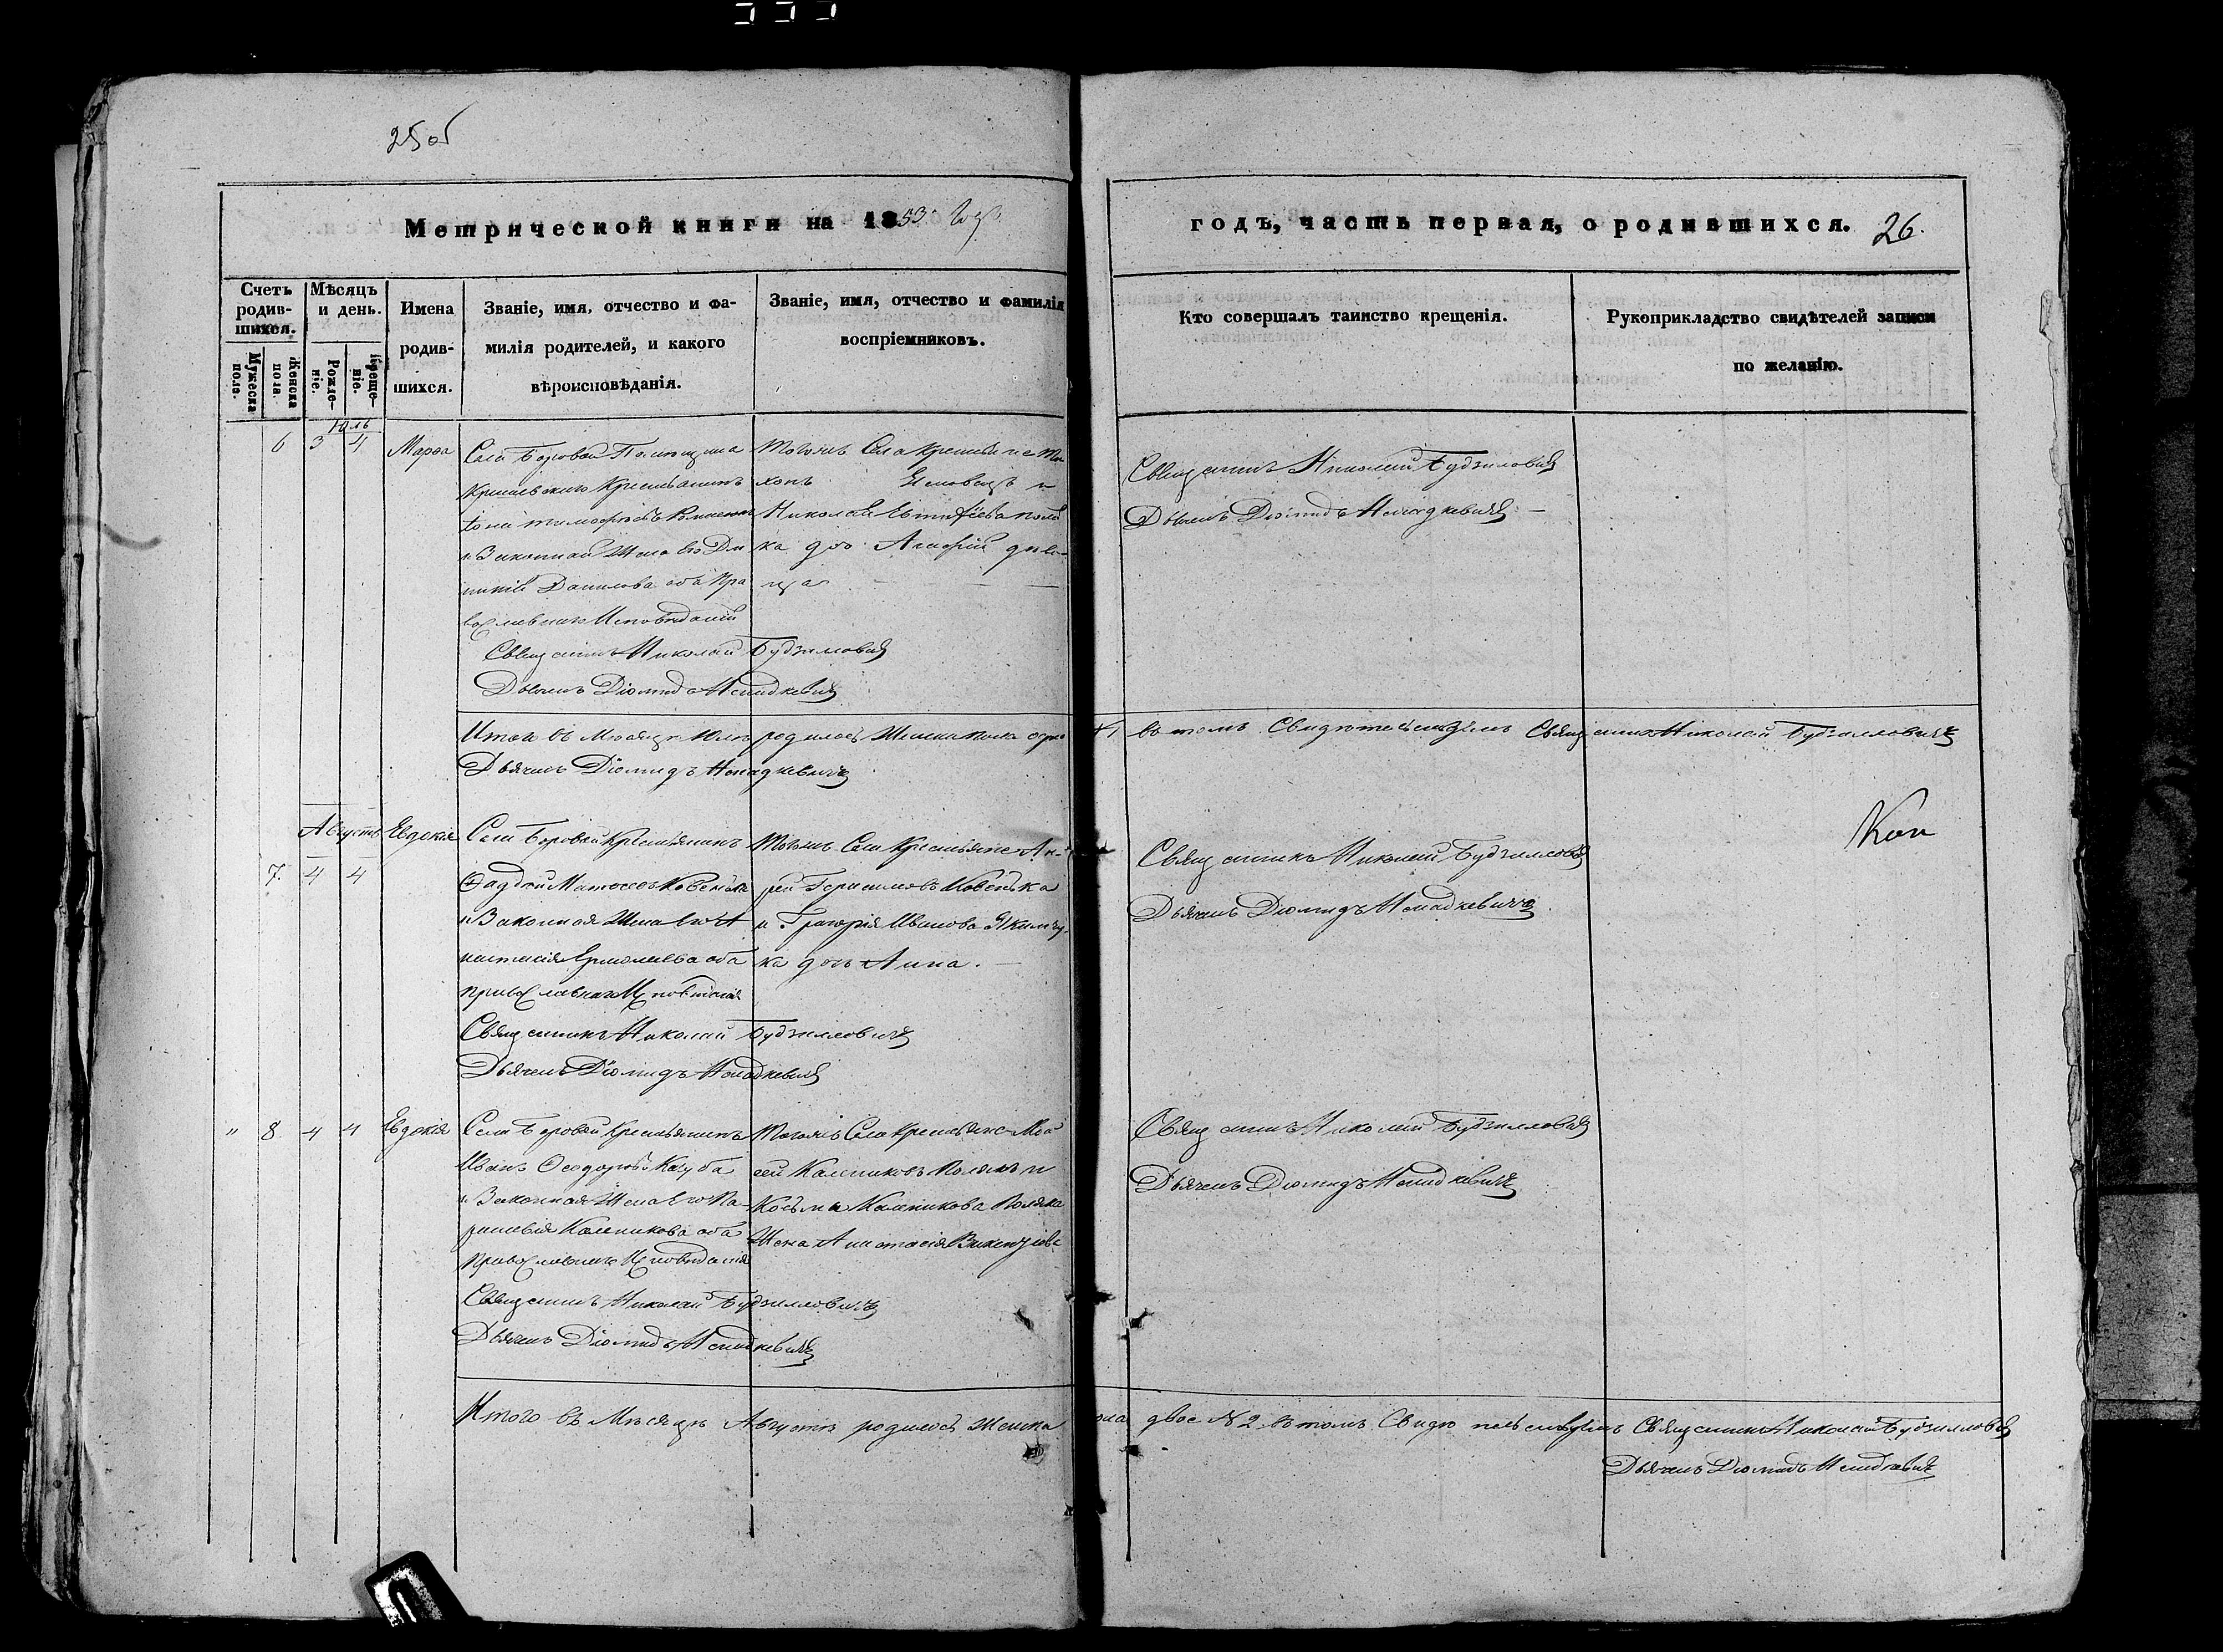 25 об
Метрической книги на 1853 годъ
годъ, часть первая, о родившихся. 26.
Счетъ родив-шихся.
Мужеска пола.
Женска пола.
Мѣсяцъ и день.
Рожде-ніе.
Креще-ніе.
Имена родив-шихся.
Званіе, имя, отчество и фа-
милія родителей, и какого
вѣроисповѣданія.
Званіе, имя, отчество и фамилія
воспріемниковъ.
Кто совершалъ таинство крещенія.
Рукоприкладство свидѣтелей записи
по желанію.
Юль
6 3 4 Марѳа
Села Боровой Помещика
Крестьянинъ
Тимофѣевъ
и Законная Жена его Ди
Данилова оба Пра
вославнаго Исповѣданія
Священникъ Николай Будзиловичъ
Дьячекъ Діомидъ
Тогожъ Села Крестьяне
и
Николая
ка дочь Агафія дѣви-
ца
Священникъ Николай Будзиловичъ
Дьячекъ Діомидъ
Итого въ Месяцѣ Юлѣ родилось Женска пола одна
№ 1 въ томъ Свидѣтельствуемъ Священникъ Николай Будзилловичъ
Дьячекъ Діомидъ
Августъ
7 4 4 Евдокія
Села Боровой Крестьянинъ
Фаддей Ковенька
и Законная Жена его А
настасія Ермолаева оба
православнаго Исповѣданія
Священникъ Николай Будзилловичъ
Дьячекъ Діомидъ
Тогожъ Села Крестьяне Ан-
рей Герасимовъ Ковенька
и Григорія Иванова Якимчу-
ка дочь Анна.
Священникъ Николай Будзиловичъ
Дьячекъ Діомидъ
Коп
" 8. 4 4 Евдокія
Села Боровой Крестьянинъ
Иванъ Феодоровъ
и Законная Жена Его Па-
раскевія Каленикова оба
Православнаго Исповѣданія
Священникъ Николай Будзилловичъ
Дьячекъ Діомидъ
Тогожъ Села Крестьяне Мои
сей Калениковъ Полякъ и
Косьмы Каленикова Поляка
Жена Анастасія
Священникъ Николай Будзилловичъ
Дьячекъ Діомидъ
Итого въ Мѣсяцѣ Августѣ родилось Женска
пола двое № 2 въ томъ Свидетельствуемъ Священникъ Николай Будзилловичъ
Дьячекъ Діомидъ